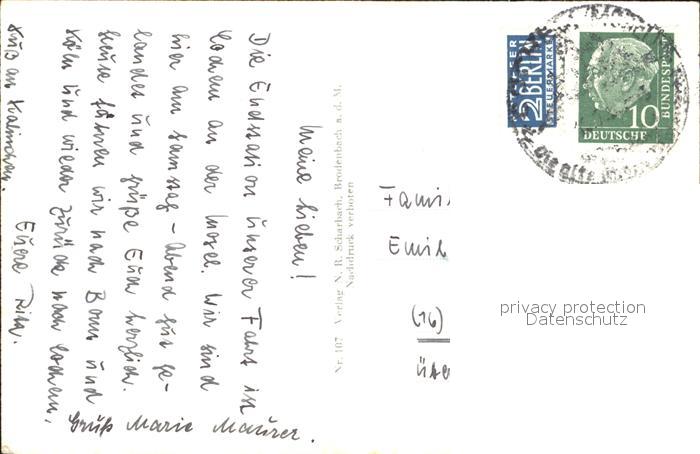 Meine Lieben!
Die Endstation unserer Fahrt ist
Cochem an der Mosel. Wir sind
hier am Samstag-Abend gut ge-
landet und grüße Euch herzlich.
Heute fahren wir nach Bonn und
Köln und wieder zurück nach Cochem.
Gruß Marie Maurer.
Euere
Gruß an
Nr. 107 Verlag N. R. Scharbach, Brodenbach a. d. M.
Nachdruck verboten
2 BERLIN
STEUERMARKE
10
DEUTSCHE
BUNDESPOST
Fami
Emil
(16)
privacy protection
Datenschutz